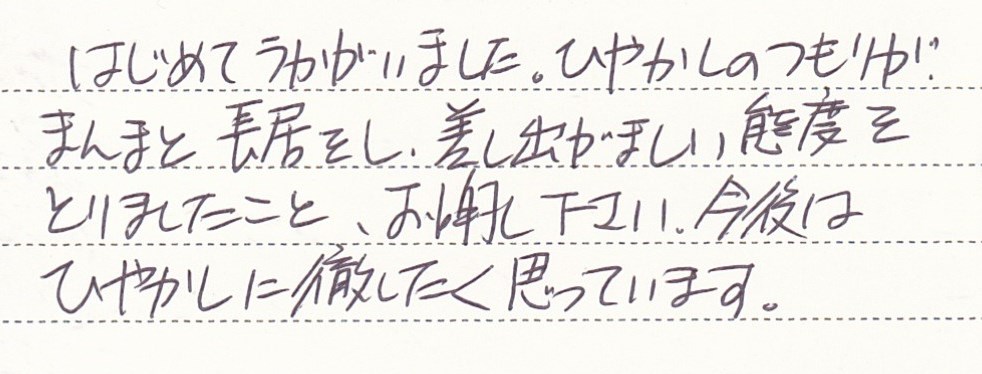 はじめてうかがいました。ひやかしのつもりが、
まんまと長居をし、差し出がましい態度を
とりましたこと、お恕し下さい。今後は
ひやかしに徹したく思っています。